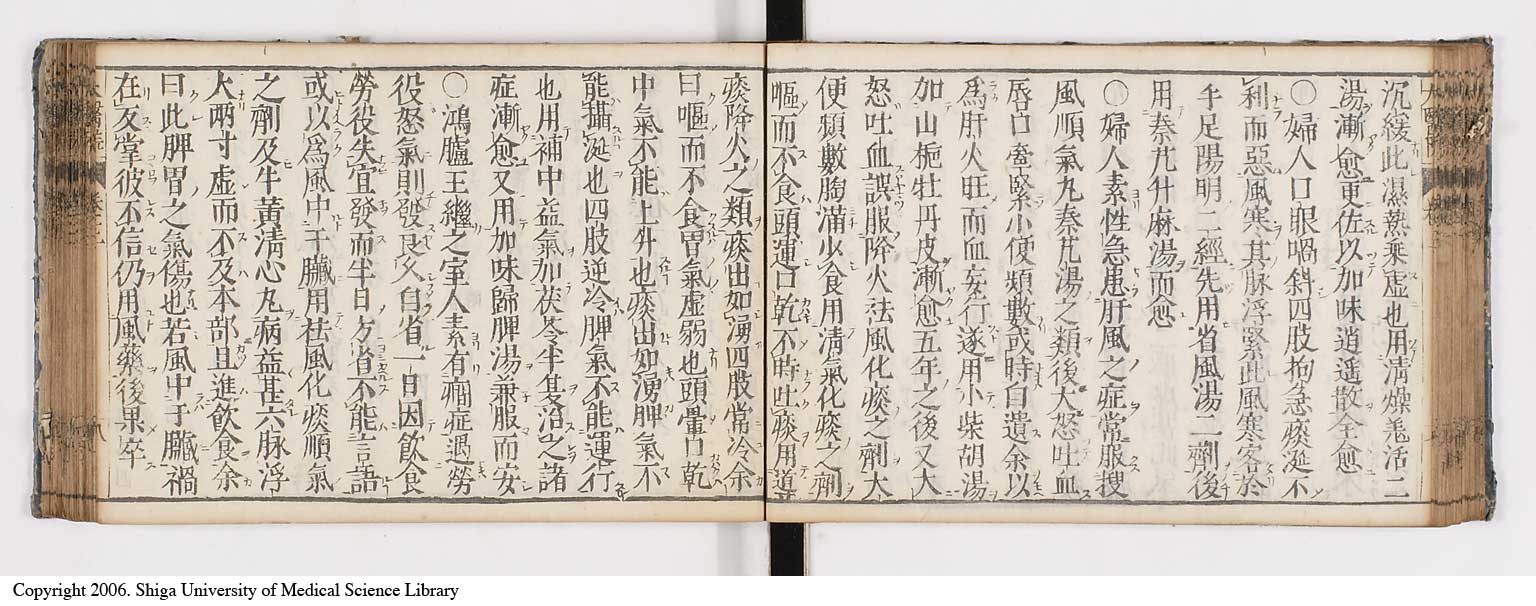 沉緩此濕熱乗虚也用清燥羌活二
湯漸愈更佐以加味逍遥散全愈
〇婦人口眼喎斜四肢拘急痰涎不
利而惡風寒其脉浮緊此風寒客於
手足陽明二經先用省風湯二劑後
用秦艽升麻湯而愈
〇婦人素性急患肝風之症常服搜
風順氣丸秦艽湯之類後大怒吐血
唇口牽緊小便頻數或時自遺余以
爲肝火旺而血妄行遂用小柴胡湯
加山梔牡丹皮漸愈五年之後又大
怒吐血誤服降火祛風化痰之劑大
便頻數胸滿少食用清氣化痰之劑
嘔而不食頭運口乾不時吐痰用導
痰降火之類痰出如湧四肢常冷余
曰嘔而不食胃氣虚弱也頭暈口乾
中氣不能上升也痰出如湧脾氣不
能攝涎也四肢逆冷脾氣不能運行
也用補中益氣加茯苓半夏治之諸
症漸愈又用加味歸脾湯兼服而安
〇鴻臚王繼之室人素有癇症遇勞
役怒氣則發良久自省一日因飲食
勞役失宜發而半日方省不能言語
或以爲風中于臟用祛風化痰順氣
之劑及牛黄清心丸病益甚六脉浮
大兩寸虚而不及本部且進飲食余
曰此脾胃之氣傷也若風中于臟禍
在反掌彼不信仍用風藥後果卒
Copyright 2006. Shiga University of Medical Science Library